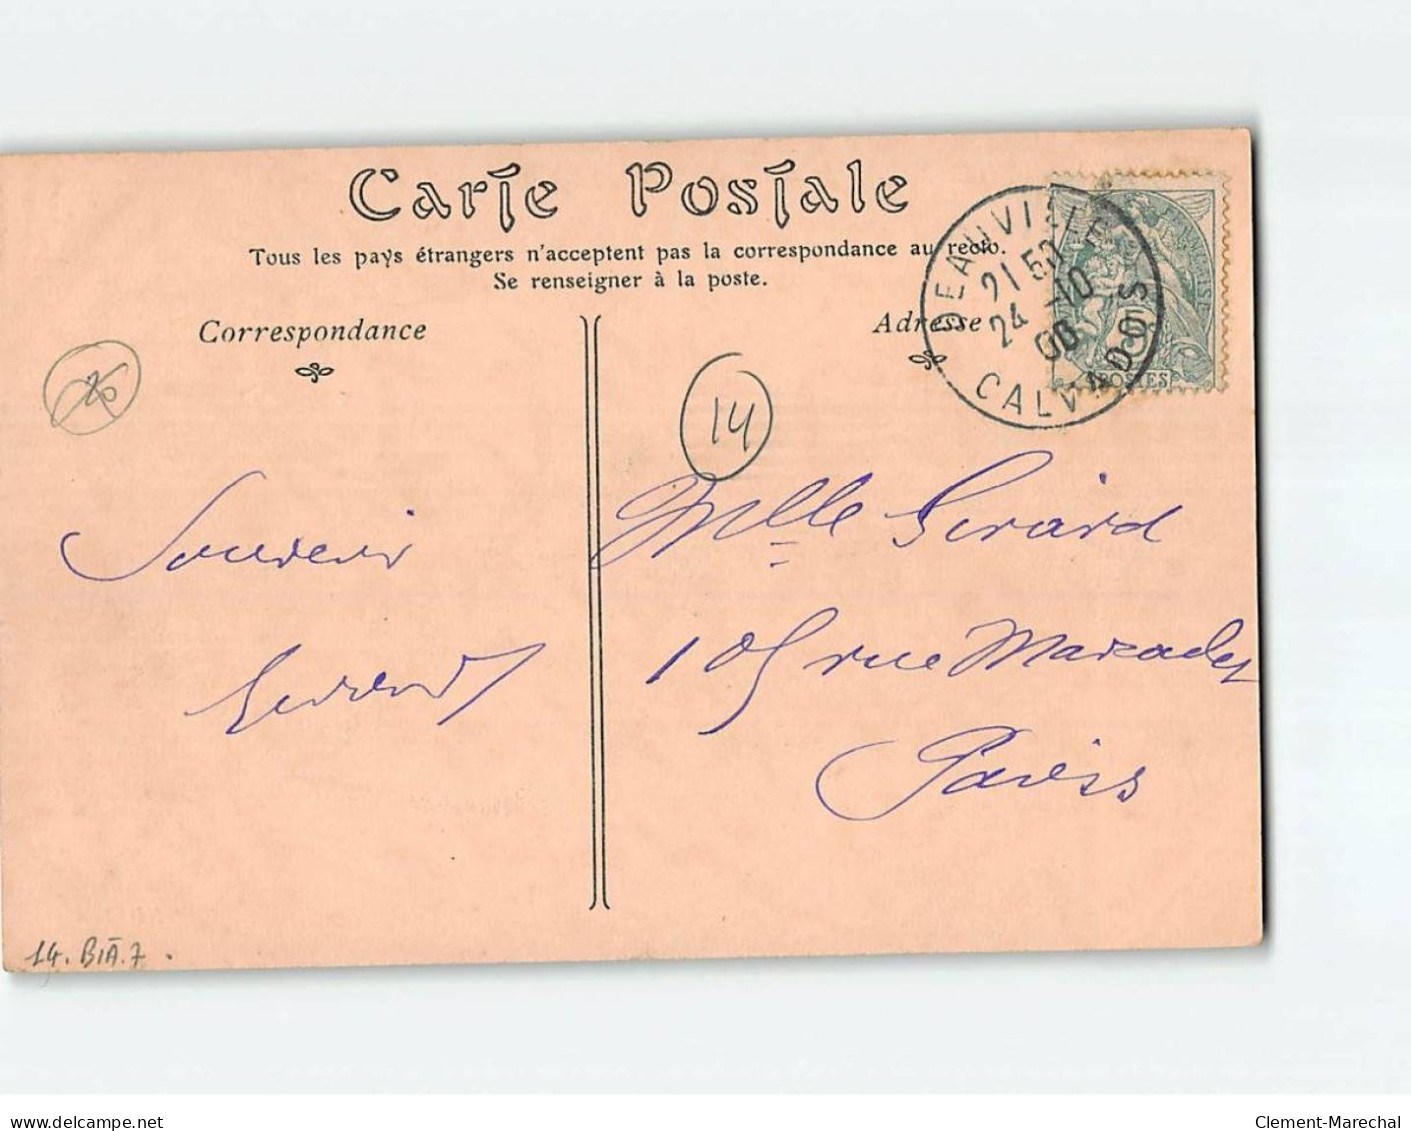 Carte Postale
Tous les pays étrangers n'acceptent pas la correspondance au recto.
Se renseigner à la poste.
Correspondance
Adresse
DEAUVILLE
21 50
24 -10
CALVADOS
POSTES
14
Souvenir
Mlle
105 rue
Paris
14. BIA.7.
delcampe.net
Clement-Marechal